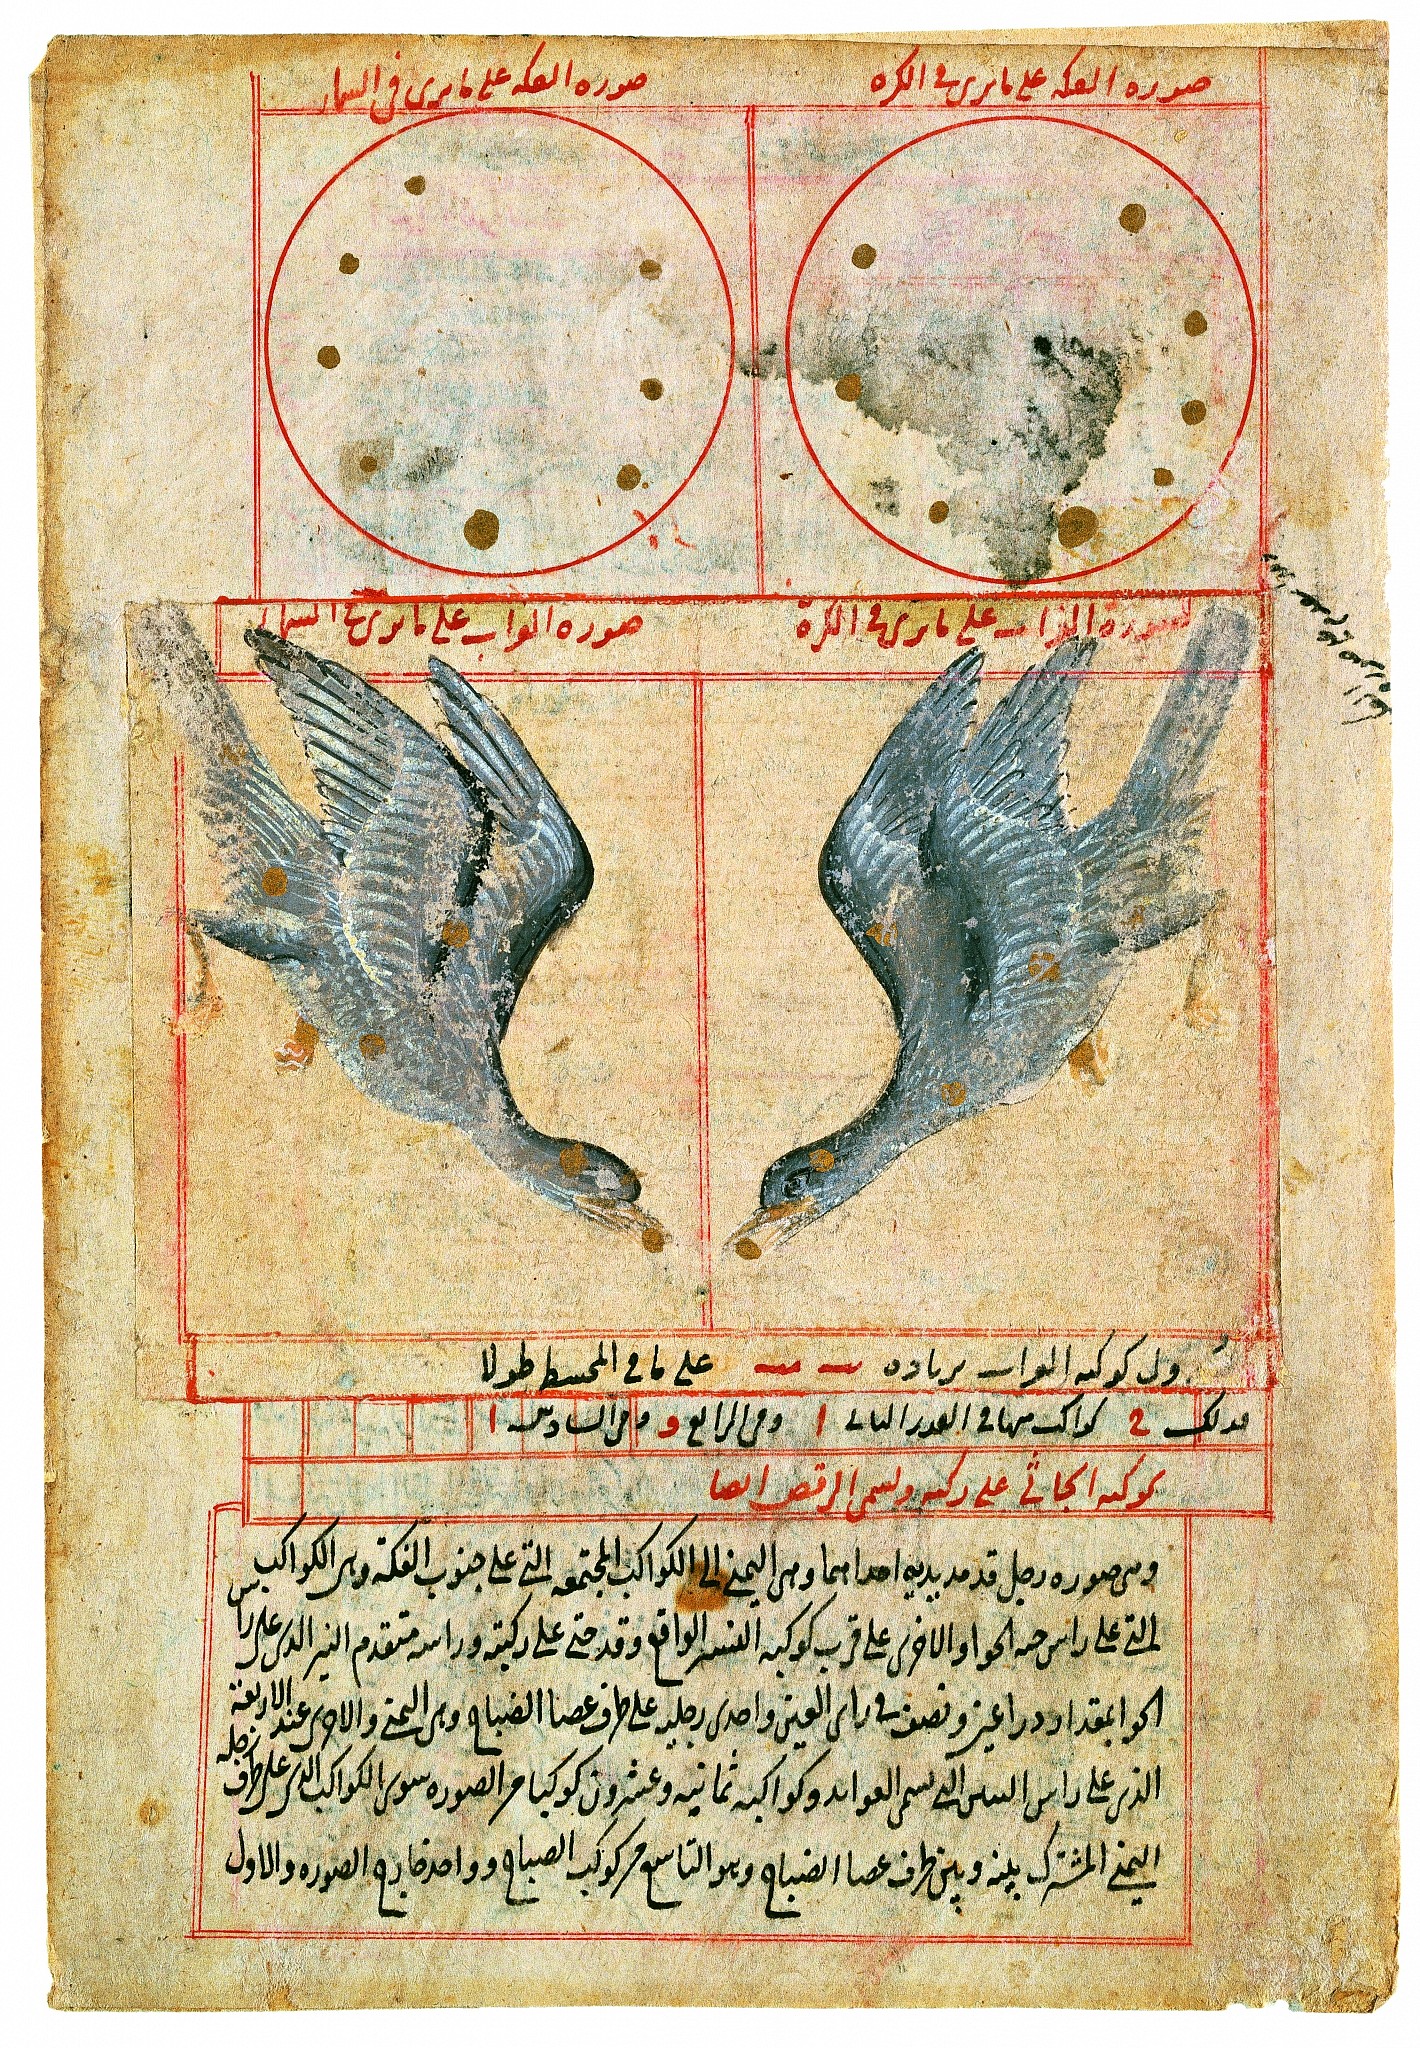 صوره الفكه على ما يرى في الكره
صوره الفكه على ما يرى في السماء
صورة الغراب على ما يرى في الكرة
صوره الغراب على ما يرى في السماء
كوكبه الغراب بزياده على ما في المجسطي طولا
كواكب منها في القدر الثالث ا وفي الرابع و وفي السادس ا
كوكبه الجاثي على ركبته ويسمى الرقص ايضا
وهى صوره رجل قد مد يديه احداهما وهى اليمنى الى الكواكب المجتمعه التى على جنوب الفكة وهى الكواكب
التى على راس حيه الحوا والاخرى على قرب كوكبه النسر الواقع وقد جثى على ركبته وراسه متقدم النير الذى على راس
الحوا بمقدار ذراعين ونصف في راى العين واحدى رجليه على طرف عصا الضباح وهى اليمنى والاخرى عند الاربعة
الذى على راس التنين التى تسمى العوايد وكواكبه ثمانيه وعشرون كوكبا من الصوره سوى الكواكب الذى على طرف رجله
اليمنى المشترك بينه وبين طرف عصا الضباح وهو التاسع من كوكب الضباح وواحد خارج الصوره والاول